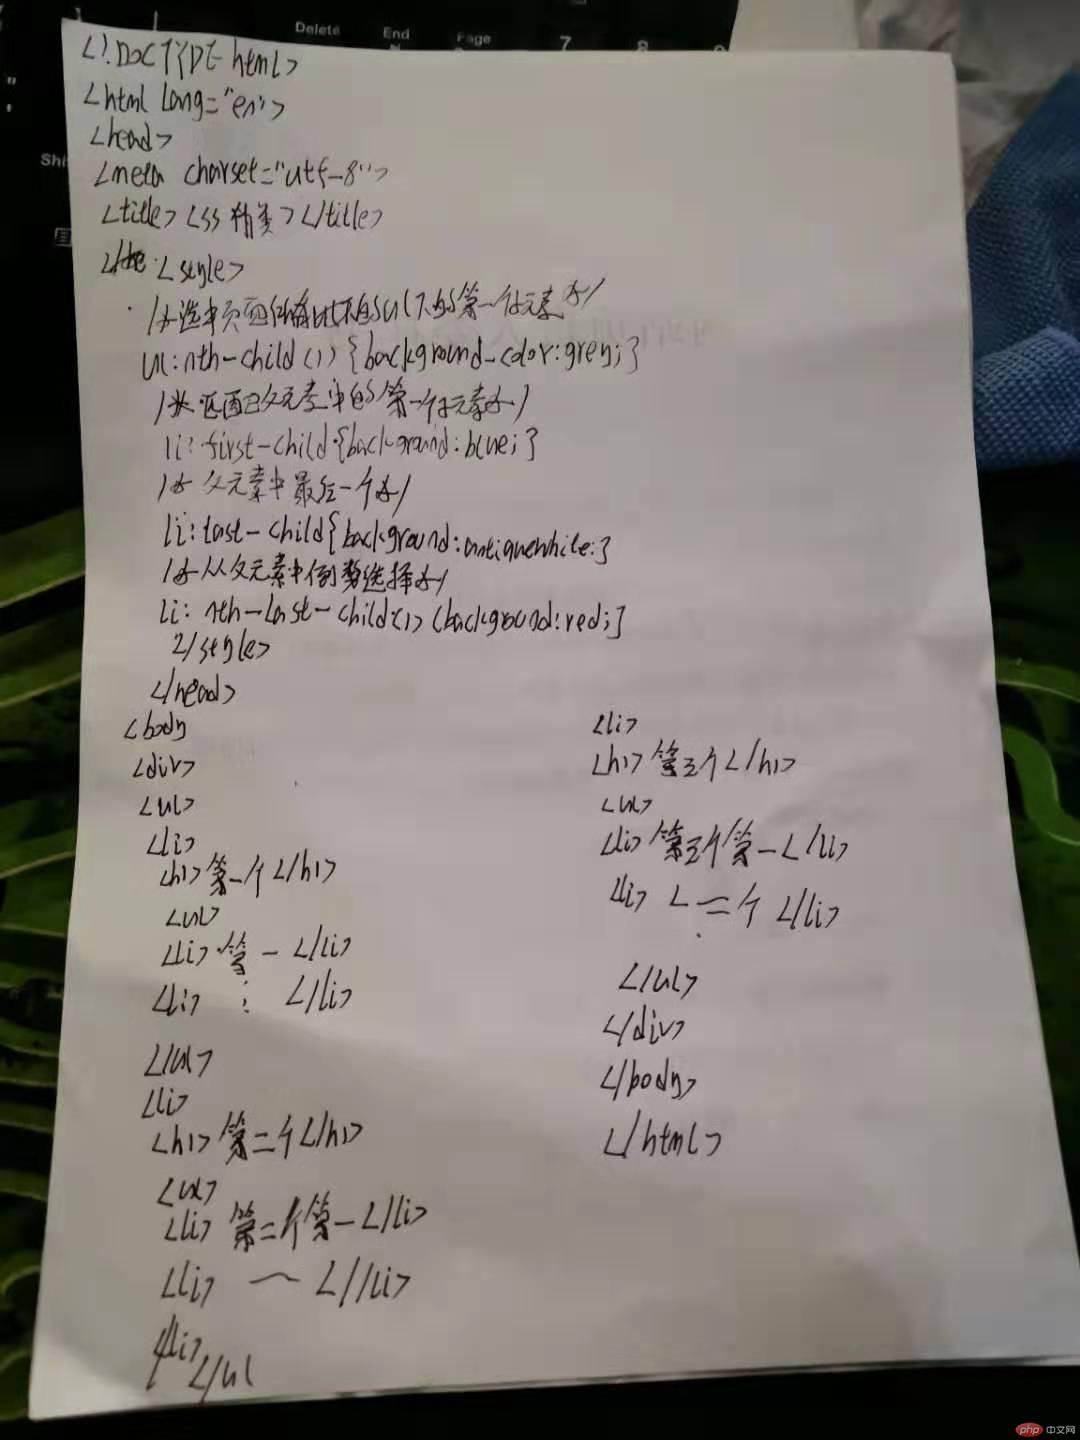 Delete
End
Page
7
8
9
Shi
<!DOCTYPE html>
<html lang="en">
<head>
<meta charset="utf-8">
<title> css 精类 > </title>
<style>
/* 选中页面所有 ul下的第一个元素 */
ul:nth-child(1) {background-color:grey;}
/* 匹配父元素中的第一个元素 */
li:first-child {background:blue;}
/* 父元素中最后一个 */
li:last-child{background:antiquewhite;}
/* 从父元素中倒数选择 */
li:nth-last-child(1) {background:red;}
</style>
</head>
<body
<div>
<ul>
<li>
<h1> 第一个 </h1>
<ul>
<li> 第一 </li>
<li> ⋮ </li>
</ul>
<li>
<h1> 第二个 </h1>
<ul>
<li> 第二个第一 </li>
<li> 一 <//li>
</li>
</ul
<li>
<h1> 第三个 </h1>
<ul>
<li> 第三个第一 </li>
<li> 二个 </li>
</ul>
</div>
</body>
</html>
php 中文网